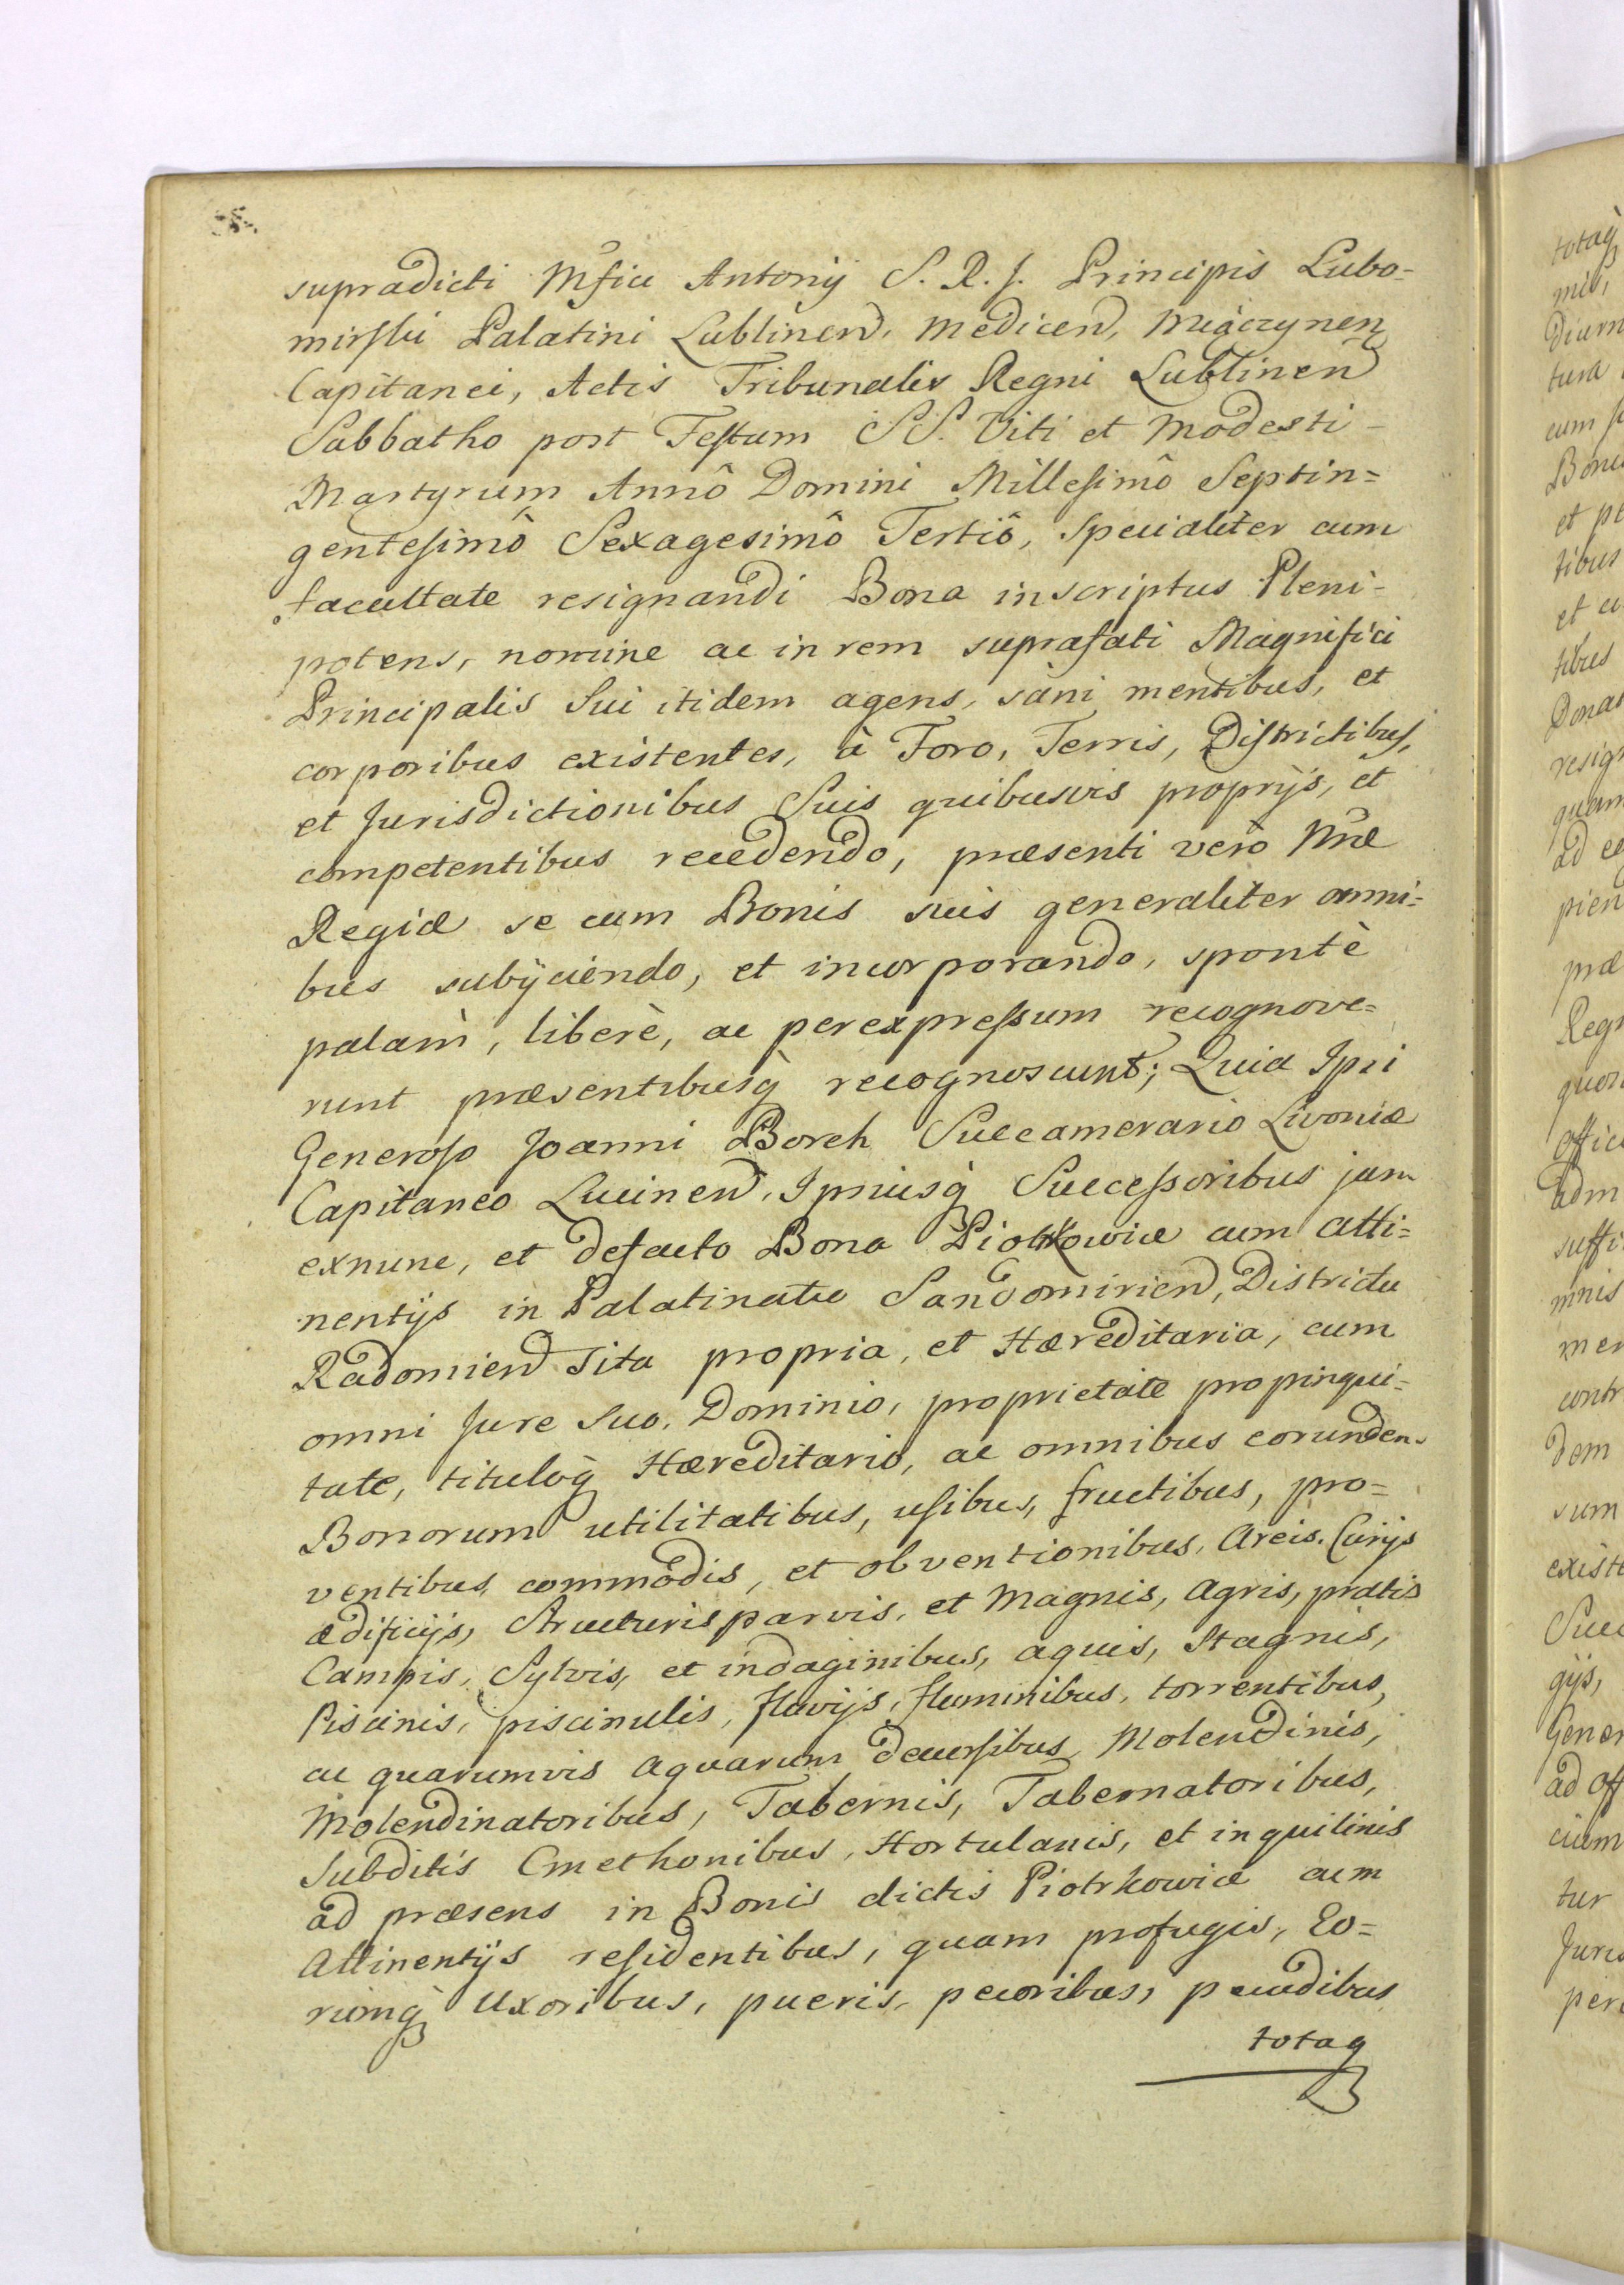 supradicti Mfici Antonij S. R. J. Principis Lubo=
mirski Palatini Lublinen, Medicen,
Capitanei, Actis Tribunalis Regni Lublinen
Sabbatho post Festum SS. Viti et Modesti -
Martyrum Annô Domini Millesimô Septin=
gentesimô Sexagesimô Tertiô, specialiter cum
facultate resignandi Bona inscriptus Pleni=
potens, nomine ac in rem suprafati Magnifici
Principalis sui itidem agens, sani mentibus, et
corporibus existentes, à Foro, Terris, Districtibus,
et Jurisdictionibus Suis quibusvis proprijs, et
competentibus recedendo, præsenti verò Mttæ
Regiæ se cum Bonis suis generaliter omni=
bus subijciendo, et incorporando, spontè
palàm, liberè, ac per expressum recognove=
runt præsentibusq̀ recognoscunt; Quia Ipsi
Generoso Joanni Borch Succamerario Livoniæ
Capitaneo Lucinen, Ipsiusq̀ Successoribus jam
exnunc, et defacto Bona Piotrkowice cum Atti=
nentijs in Palatinatu Sandomirien, Districtu
Radomien sita propria, et Hæreditaria, cum
omni Jure suo, Dominio, proprietate propinqui=
tate, tituloq̀ Hæreditario, ac omnibus eorundem
Bonorum utilitatibus, usibus, fructibus, pro=
ventibus, commodis, et obventionibus, Areis, Curijs
ædificijs, structuris parvis, et Magnis, Agris, pratis
Campis, Sylvis, et indaginibus, aquis, Stagnis,
Piscinis, piscinulis, fluvijs, fluminibus, torrentibus,
ac quarumvis aquarum decursibus, Molendinis,
Molendinatoribus, Tabernis, Tabernatoribus,
Subditis Cmethonibus, Hortulanis, et inquilinis
ad præsens in Bonis dictis Piotrkowice cum
Attinentijs residentibus, quam profugis, Eo=
rumq̀ Uxoribus, pueris, pecoribus, pecudibus
totaq